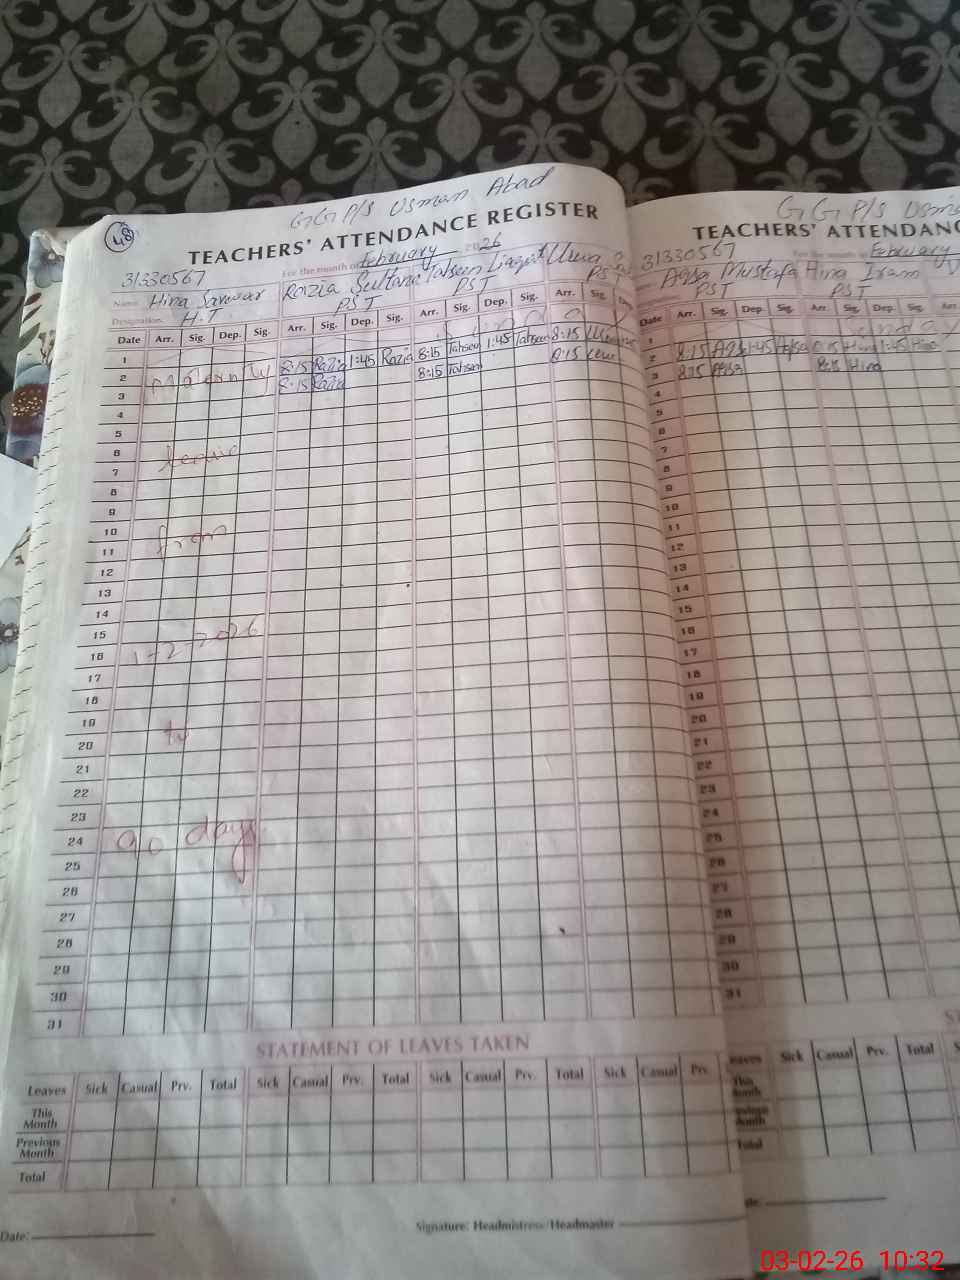 48
GGP/S Usman Abad
TEACHERS' ATTENDANCE REGISTER
31330567 For the month of February 2026
Name Hina Sarwar Razia Sultana Tahsen Liaqat Urwa
Designation H.T PST PST PST
Date Arr. Sig. Dep. Sig. Arr. Sig. Dep. Sig. Arr. Sig. Dep. Sig. Arr. Sig. Dep.
1
2 Maternity 8:15 Razia 1:45 Razia 8:15 Tahsen 1:45 Tahsen 8:15
3 8:15 Razia 8:15 Tahsen 8:15
4
5
6 leave
7
8
9
10
11 from
12
13
14
15
16 1-2-2026
17
18
19
20 to
21
22
23
24 90 days
25
26
27
28
29
30
31
STATEMENT OF LEAVES TAKEN
Leaves Sick Casual Prv. Total Sick Casual Prv. Total Sick Casual Prv. Total Sick Casual Prv.
This Month
Previous Month
Total
Date:
Signature: Headmistress/Headmaster
GGP/S
TEACHERS' ATTENDANC
31330567 For the month of February
Aqsa Mustafa Hina Iram
PST PST
Date Arr. Sig. Dep. Sig. Arr. Sig. Dep. Sig.
1 Sunda
2 8:15 Aqsa 1:45 Aqsa 8:15 Hina 1:45 Hina
3 8:15 Aqsa 8:15 Hina
4
5
6
7
8
9
10
11
12
13
14
15
16
17
18
19
20
21
22
23
24
25
26
27
28
29
30
31
Leaves Sick Casual Prv. Total
This Month
Previous Month
Total
03-02-26 10:32